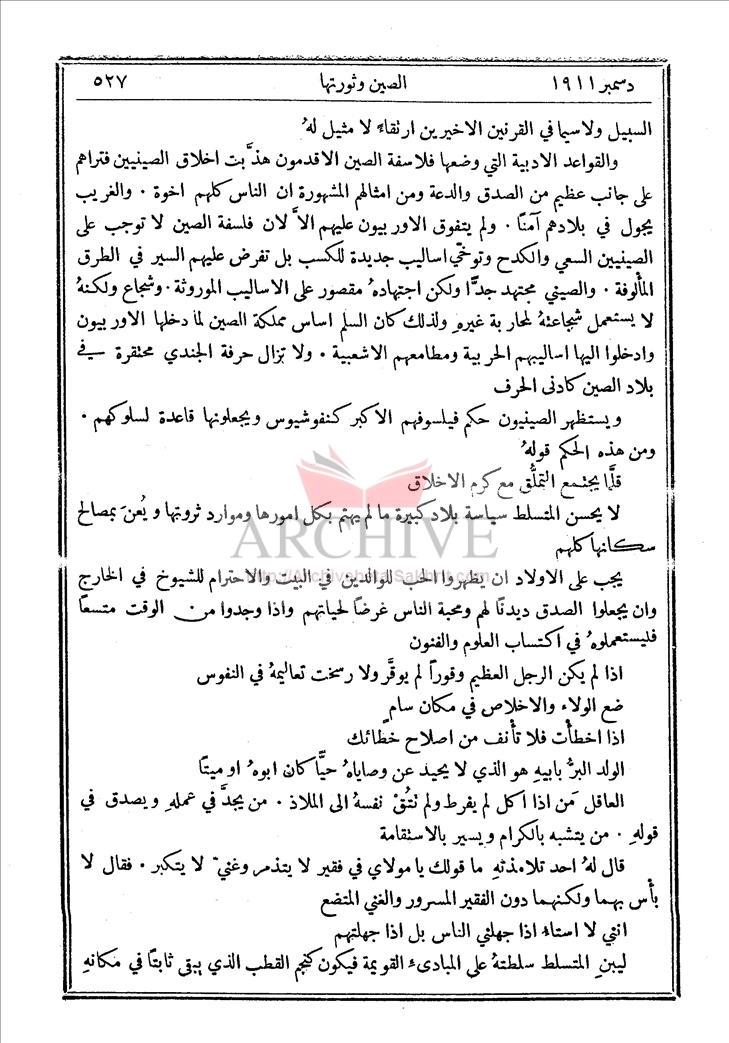 دسمبر ١٩١١ الصين وثورتها ٥٢٧
السبيل ولاسيما في القرنين الاخيرين ارتقاءً لا مثيل لهُ
والقواعد الادبية التي وضعها فلاسفة الصين الاقدمون هذَّبت اخلاق الصينيين فتراهم
على جانب عظيم من الصدق والدعة ومن امثالهم المشهورة ان الناس كلهم اخوة . والغريب
يجول في بلادهم آمنًا . ولم يتفوق الاوربيون عليهم الاَّ لان فلسفة الصين لا توجب على
الصينيين السعي والكدح وتوخّي اساليب جديدة للكسب بل تفرض عليهم السير في الطرق
المألوفة . والصيني مجتهد جدًّا ولكن اجتهادهُ مقصور على الاساليب الموروثة . وشجاع ولكنهُ
لا يستعمل شجاعتهُ لمحاربة غيرهِ ولذلك كان السلم اساس مملكة الصين لما دخلها الاوربيون
وادخلوا اليها اساليبهم الحربية ومطامعهم الاشعبية . ولا تزال حرفة الجندي محتقرة في
بلاد الصين كادنى الحرف
ويستظهر الصينيون حكم فيلسوفهم الاكبر كنفوشيوس ويجعلونها قاعدة لسلوكهم .
ومن هذه الحكم قولهُ
قلَّما يجتمع التملُّق مع كرم الاخلاق
لا يحسن المتسلط سياسة بلاد كبيرة ما لم يهتم بكل امورها وموارد ثروتها ويُعنَ بمصالح
سكانها كلهم
ARCHIVE
http://Archivebeta.Sakhrit.com
يجب على الاولاد ان يظهروا الحب للوالدين في البيت والاحترام للشيوخ في الخارج
وان يجعلوا الصدق ديدنًا لهم ومحبة الناس غرضًا لحياتهم واذا وجدوا من الوقت متسعًا
فليستعملوهُ في اكتساب العلوم والفنون
اذا لم يكن الرجل العظيم وقورًا لم يوقَّر ولا رسخت تعاليمهُ في النفوس
ضع الولاء والاخلاص في مكان سامٍ
اذا اخطأت فلا تأنف من اصلاح خطائك
الولد البرُّ بابيهِ هو الذي لا يحيد عن وصاياهُ حيًّا كان ابوهُ او ميتًا
العاقل مَن اذا اكل لم يفرط ولم نتُقْ نفسهُ الى الملاذ . من يجدَّ في عملهِ ويصدق في
قولهِ . من يتشبه بالكرام ويسير بالاستقامة
قال لهُ احد تلامذتهِ ما قولك يا مولاي في فقير لا يتذمر وغنيّ لا يتكبر . فقال لا
بأس بهما ولكنهما دون الفقير المسرور والغني المتضع
انني لا استاءُ اذا جهلني الناس بل اذا جهلتهم
ليبنِ المتسلط سلطتهُ على المبادىء القويمة فيكون كنجم القطب الذي يبقى ثابتًا في مكانهِ